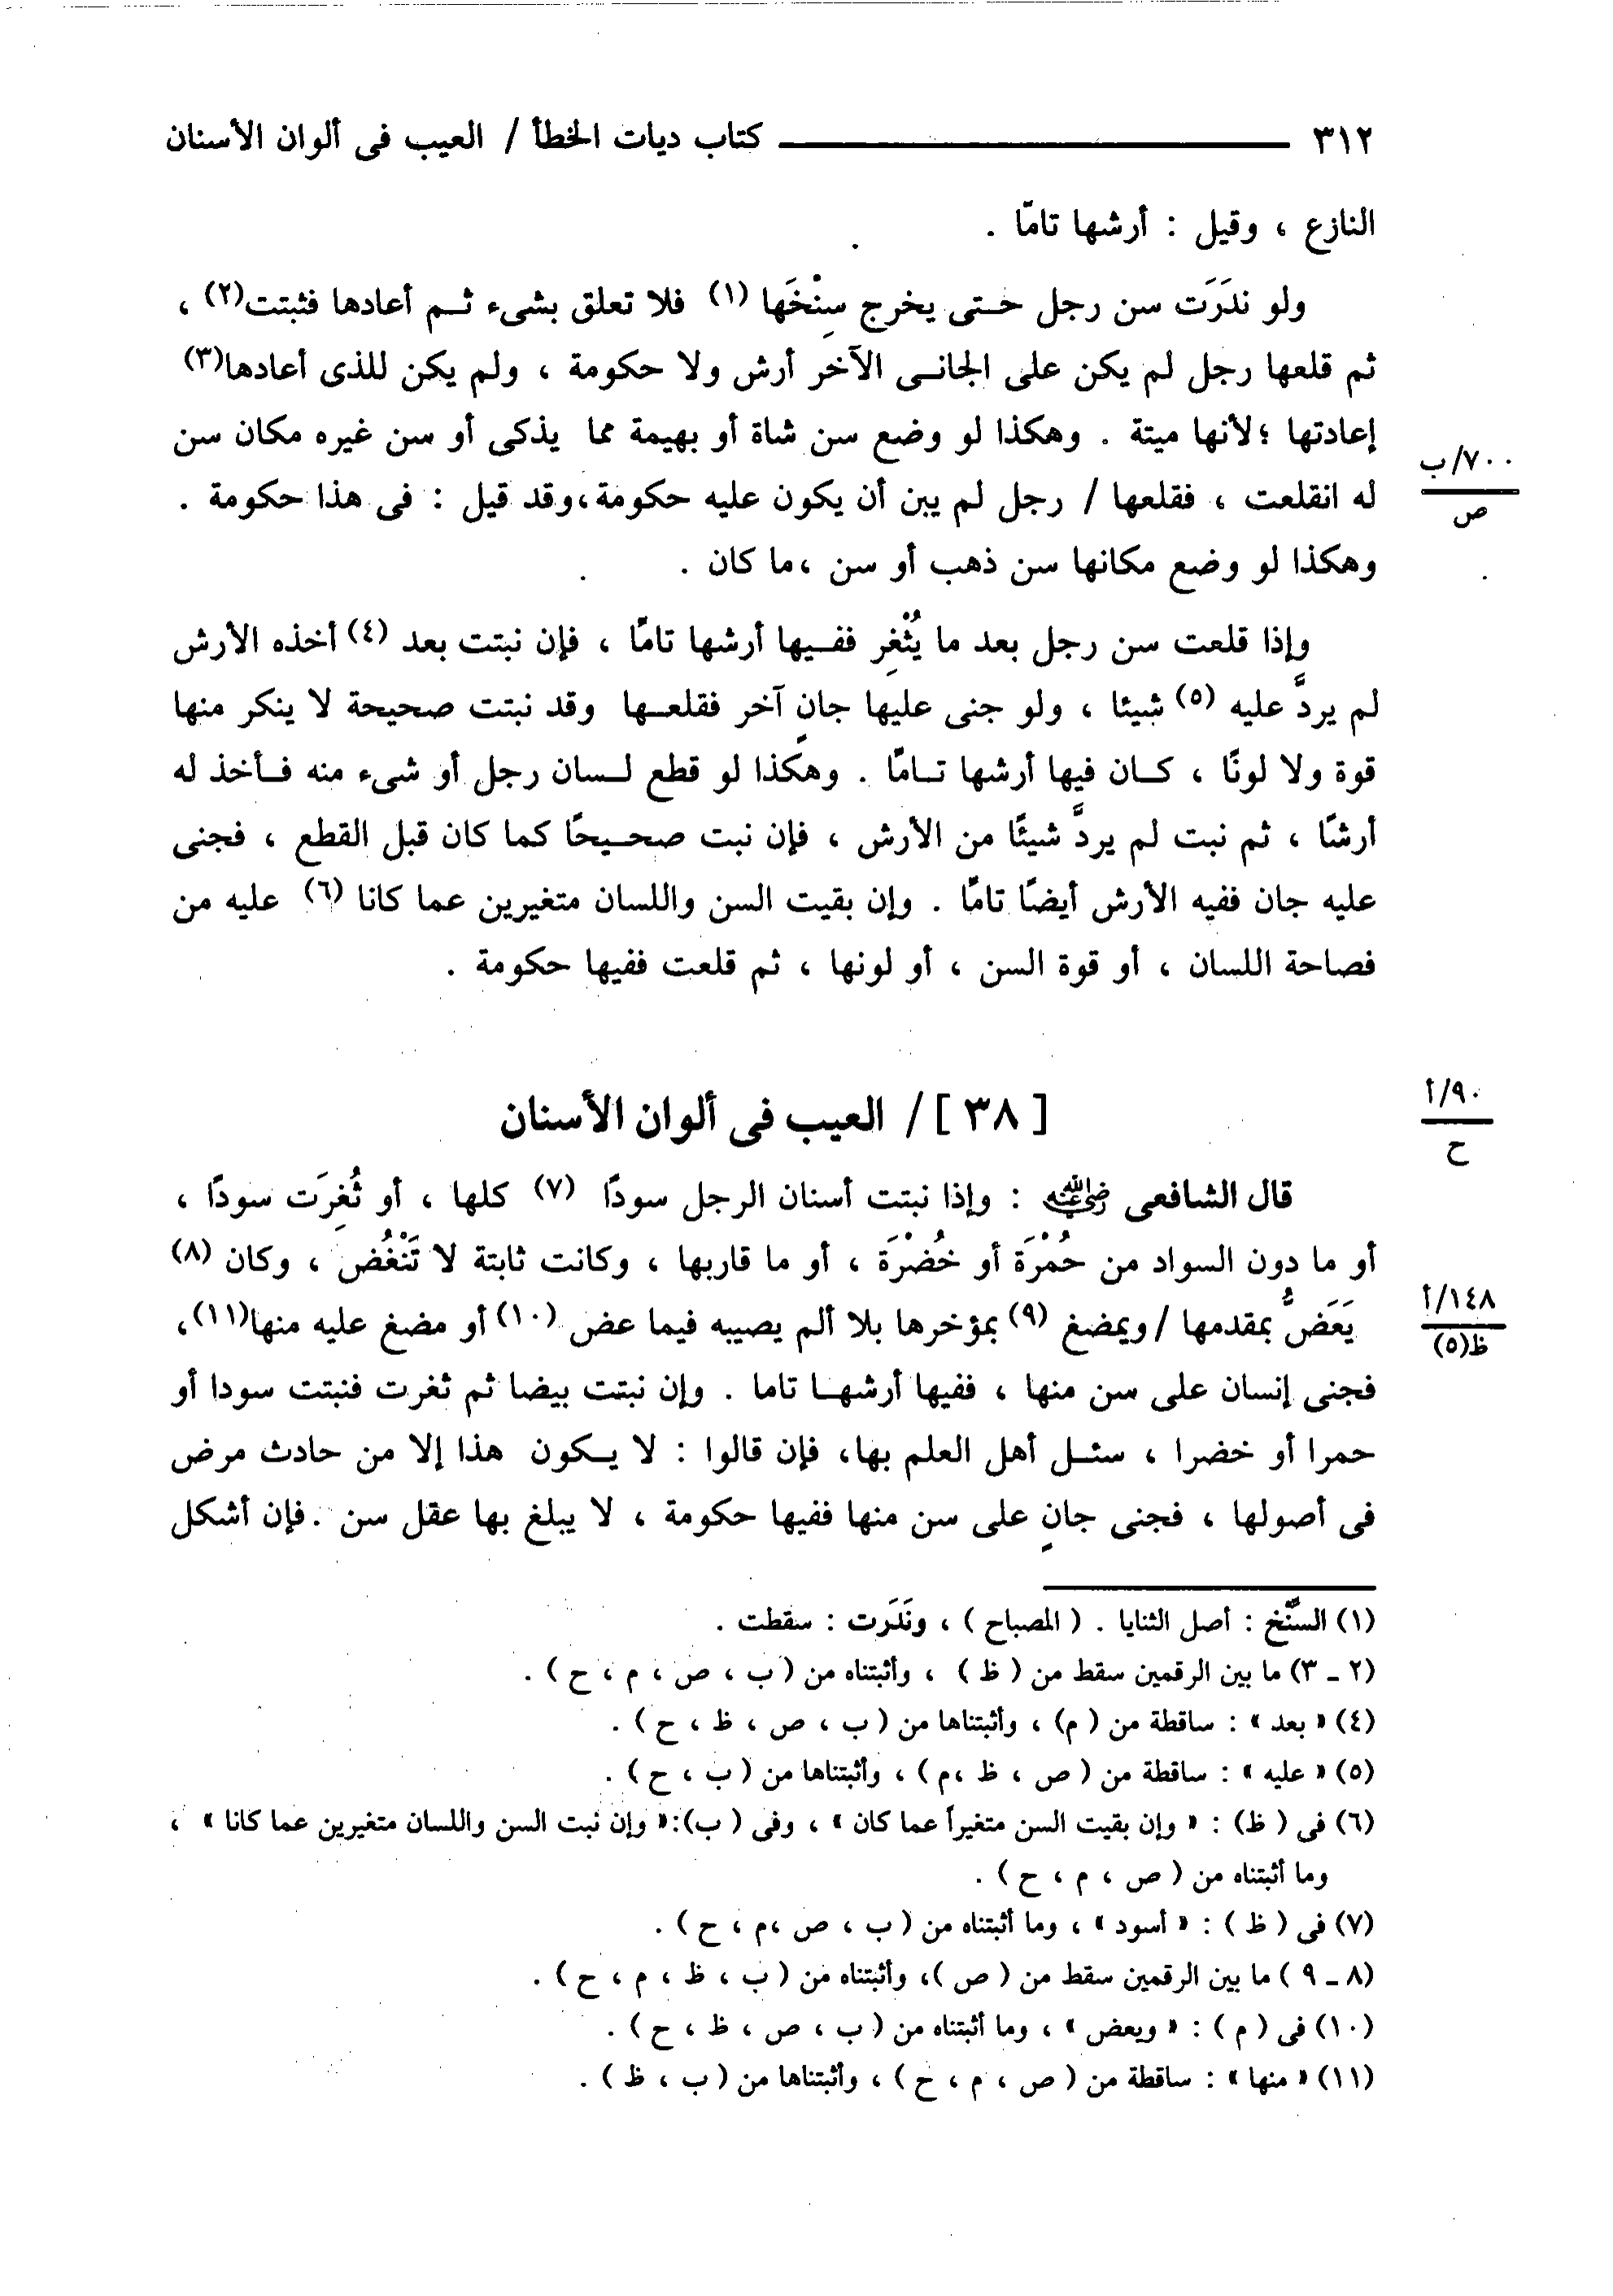 ٣١٢ ـــــــــــــــ كتاب ديات الخطأ / العيب فى ألوان الأسنان
النازع ، وقيل : أرشها تامّا .
ولو ندَرَت سن رجل حتى يخرج سِنْخُها (١) فلا تعلق بشىء ثم أعادها فثبتت(٢) ،
ثم قلعها رجل لم يكن على الجانى الآخر أرش ولا حكومة ، ولم يكن للذى أعادها(٣)
إعادتها ؛لأنها ميتة . وهكذا لو وضع سن شاة أو بهيمة مما يذكى أو سن غيره مكان سن
٧٠٠/ب
ص
له انقلعت ، فقلعها / رجل لم يبن أن يكون عليه حكومة،وقد قيل : فى هذا حكومة .
وهكذا لو وضع مكانها سن ذهب أو سن ،ما كان .
وإذا قلعت سن رجل بعد ما يُثْغِر ففيها أرشها تامًا ، فإن نبتت بعد (٤) أخذه الأرش
لم يردَّ عليه (٥) شيئا ، ولو جنى عليها جانٍ آخر فقلعها وقد نبتت صحيحة لا ينكر منها
قوة ولا لونًا ، كان فيها أرشها تامًا . وهكذا لو قطع لسان رجل أو شىء منه فأخذ له
أرشًا ، ثم نبت لم يردَّ شيئًا من الأرش ، فإن نبت صحيحًا كما كان قبل القطع ، فجنى
عليه جان ففيه الأرش أيضًا تامًا . وإن بقيت السن واللسان متغيرين عما كانا (٦) عليه من
فصاحة اللسان ، أو قوة السن ، أو لونها ، ثم قلعت ففيها حكومة .
٩٠/أ
ح
[ ٣٨ ] / العيب فى ألوان الأسنان
قال الشافعى رضي الله عنه : وإذا نبتت أسنان الرجل سودًا (٧) كلها ، أو ثُغِرَت سودًا ،
أو ما دون السواد من حُمْرَة أو خُضْرَة ، أو ما قاربها ، وكانت ثابتة لا تَنْغُض ، وكان (٨)
١٤٨/أ
ظ(٥)
يَعَضُّ بمقدمها / ويمضغ (٩) بمؤخرها بلا ألم يصيبه فيما عض (١٠) أو مضغ عليه منها(١١)،
فجنى إنسان على سن منها ، ففيها أرشها تاما . وإن نبتت بيضا ثم ثغرت فنبتت سودا أو
حمرا أو خضرا ، سئل أهل العلم بها، فإن قالوا : لا يكون هذا إلا من حادث مرض
فى أصولها ، فجنى جانٍ على سن منها ففيها حكومة ، لا يبلغ بها عقل سن .فإن أشكل
(١) السِّنْخ : أصل الثنايا . ( المصباح ) ، ونَدَرت : سقطت .
(٢ ـ ٣) ما بين الرقمين سقط من ( ظ ) ، وأثبتناه من ( ب ، ص ، م ، ح ) .
(٤) « بعد » : ساقطة من ( م) ، وأثبتناها من ( ب ، ص ، ظ ، ح ) .
(٥) « عليه » : ساقطة من ( ص ، ظ ،م ) ، وأثبتناها من ( ب ، ح ) .
(٦) فى ( ظ) : « وإن بقيت السن متغيراً عما كان » ، وفى ( ب):« وإن نبت السن واللسان متغيرين عما كانا » ،
وما أثبتناه من ( ص ، م ، ح ) .
(٧) فى ( ظ ) : « أسود » ، وما أثبتناه من ( ب ، ص ،م ، ح ) .
(٨ ـ ٩ ) ما بين الرقمين سقط من ( ص )، وأثبتناه من ( ب ، ظ ، م ، ح ) .
(١٠) فى ( م ) : « ويعض » ، وما أثبتناه من ( ب ، ص ، ظ ، ح ) .
(١١) « منها » : ساقطة من ( ص ، م ، ح ) ، وأثبتناها من ( ب ، ظ ) .